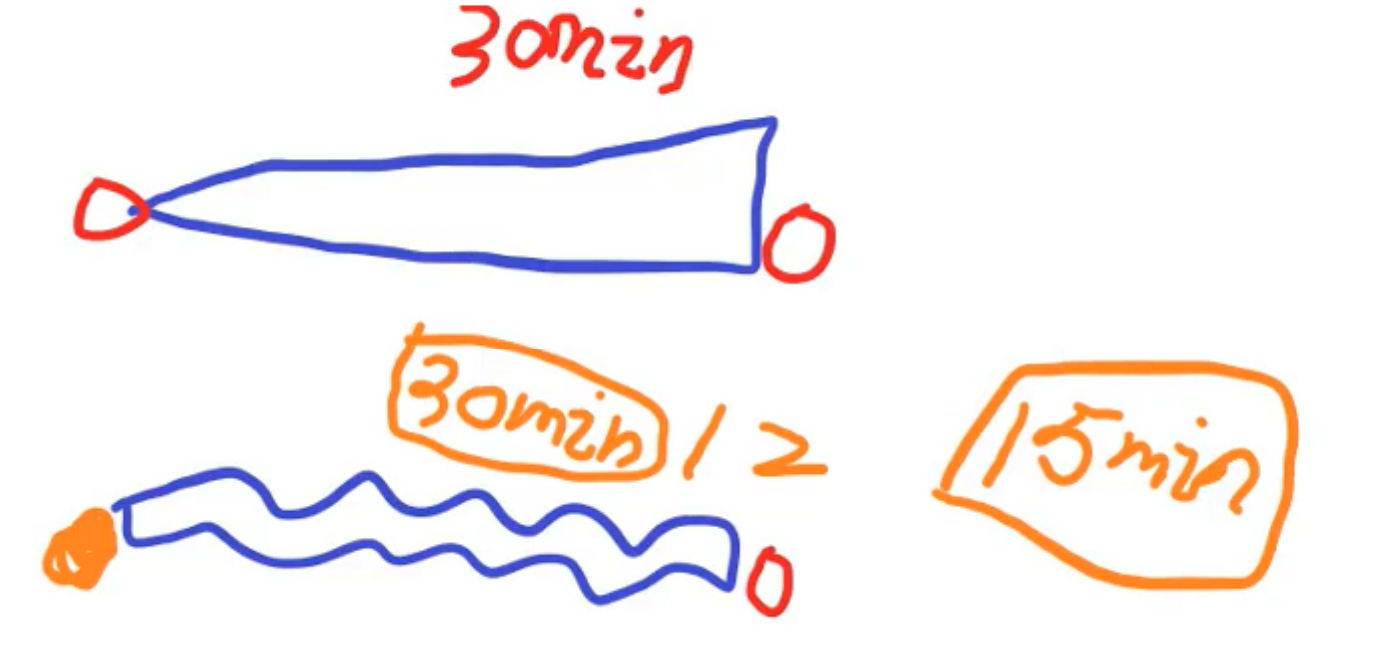 30min
30min/2
15min